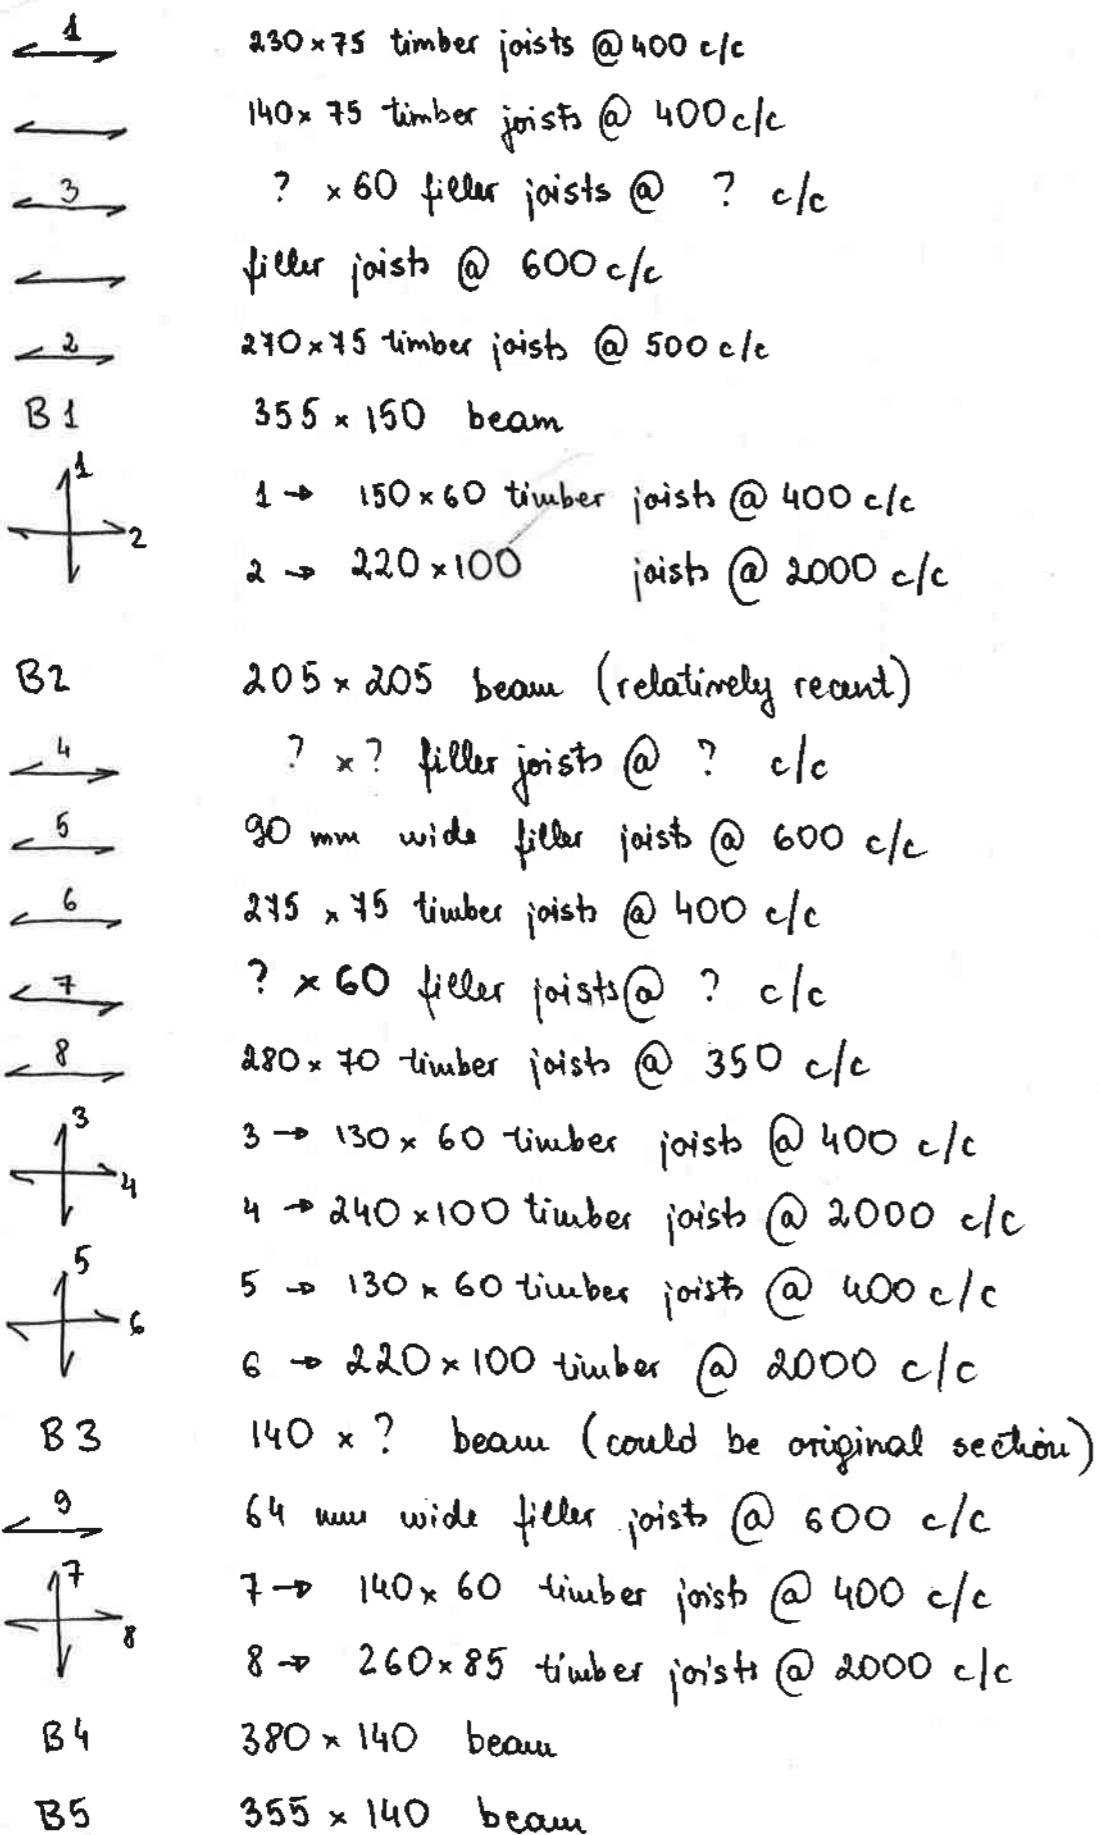 1 230×75 timber joists @ 400 c/c
140×75 timber joists @ 400 c/c
3 ? ×60 filler joists @ ? c/c
filler joists @ 600 c/c
2 270×75 timber joists @ 500 c/c
B1 355×150 beam
1
1 → 150×60 timber joists @ 400 c/c
2
2 → 220×100 joists @ 2000 c/c
B2 205×205 beam (relatively recent)
4 ? ×? filler joists @ ? c/c
5 90 mm wide filler joists @ 600 c/c
6 275×75 timber joists @ 400 c/c
7 ? ×60 filler joists @ ? c/c
8 280×70 timber joists @ 350 c/c
3
3 → 130×60 timber joists @ 400 c/c
4
4 → 240×100 timber joists @ 2000 c/c
5
5 → 130×60 timber joists @ 400 c/c
6
6 → 220×100 timber @ 2000 c/c
B3 140×? beam (could be original section)
9 64 mm wide filler joists @ 600 c/c
7
7 → 140×60 timber joists @ 400 c/c
8
8 → 260×85 timber joists @ 2000 c/c
B4 380×140 beam
B5 355×140 beam